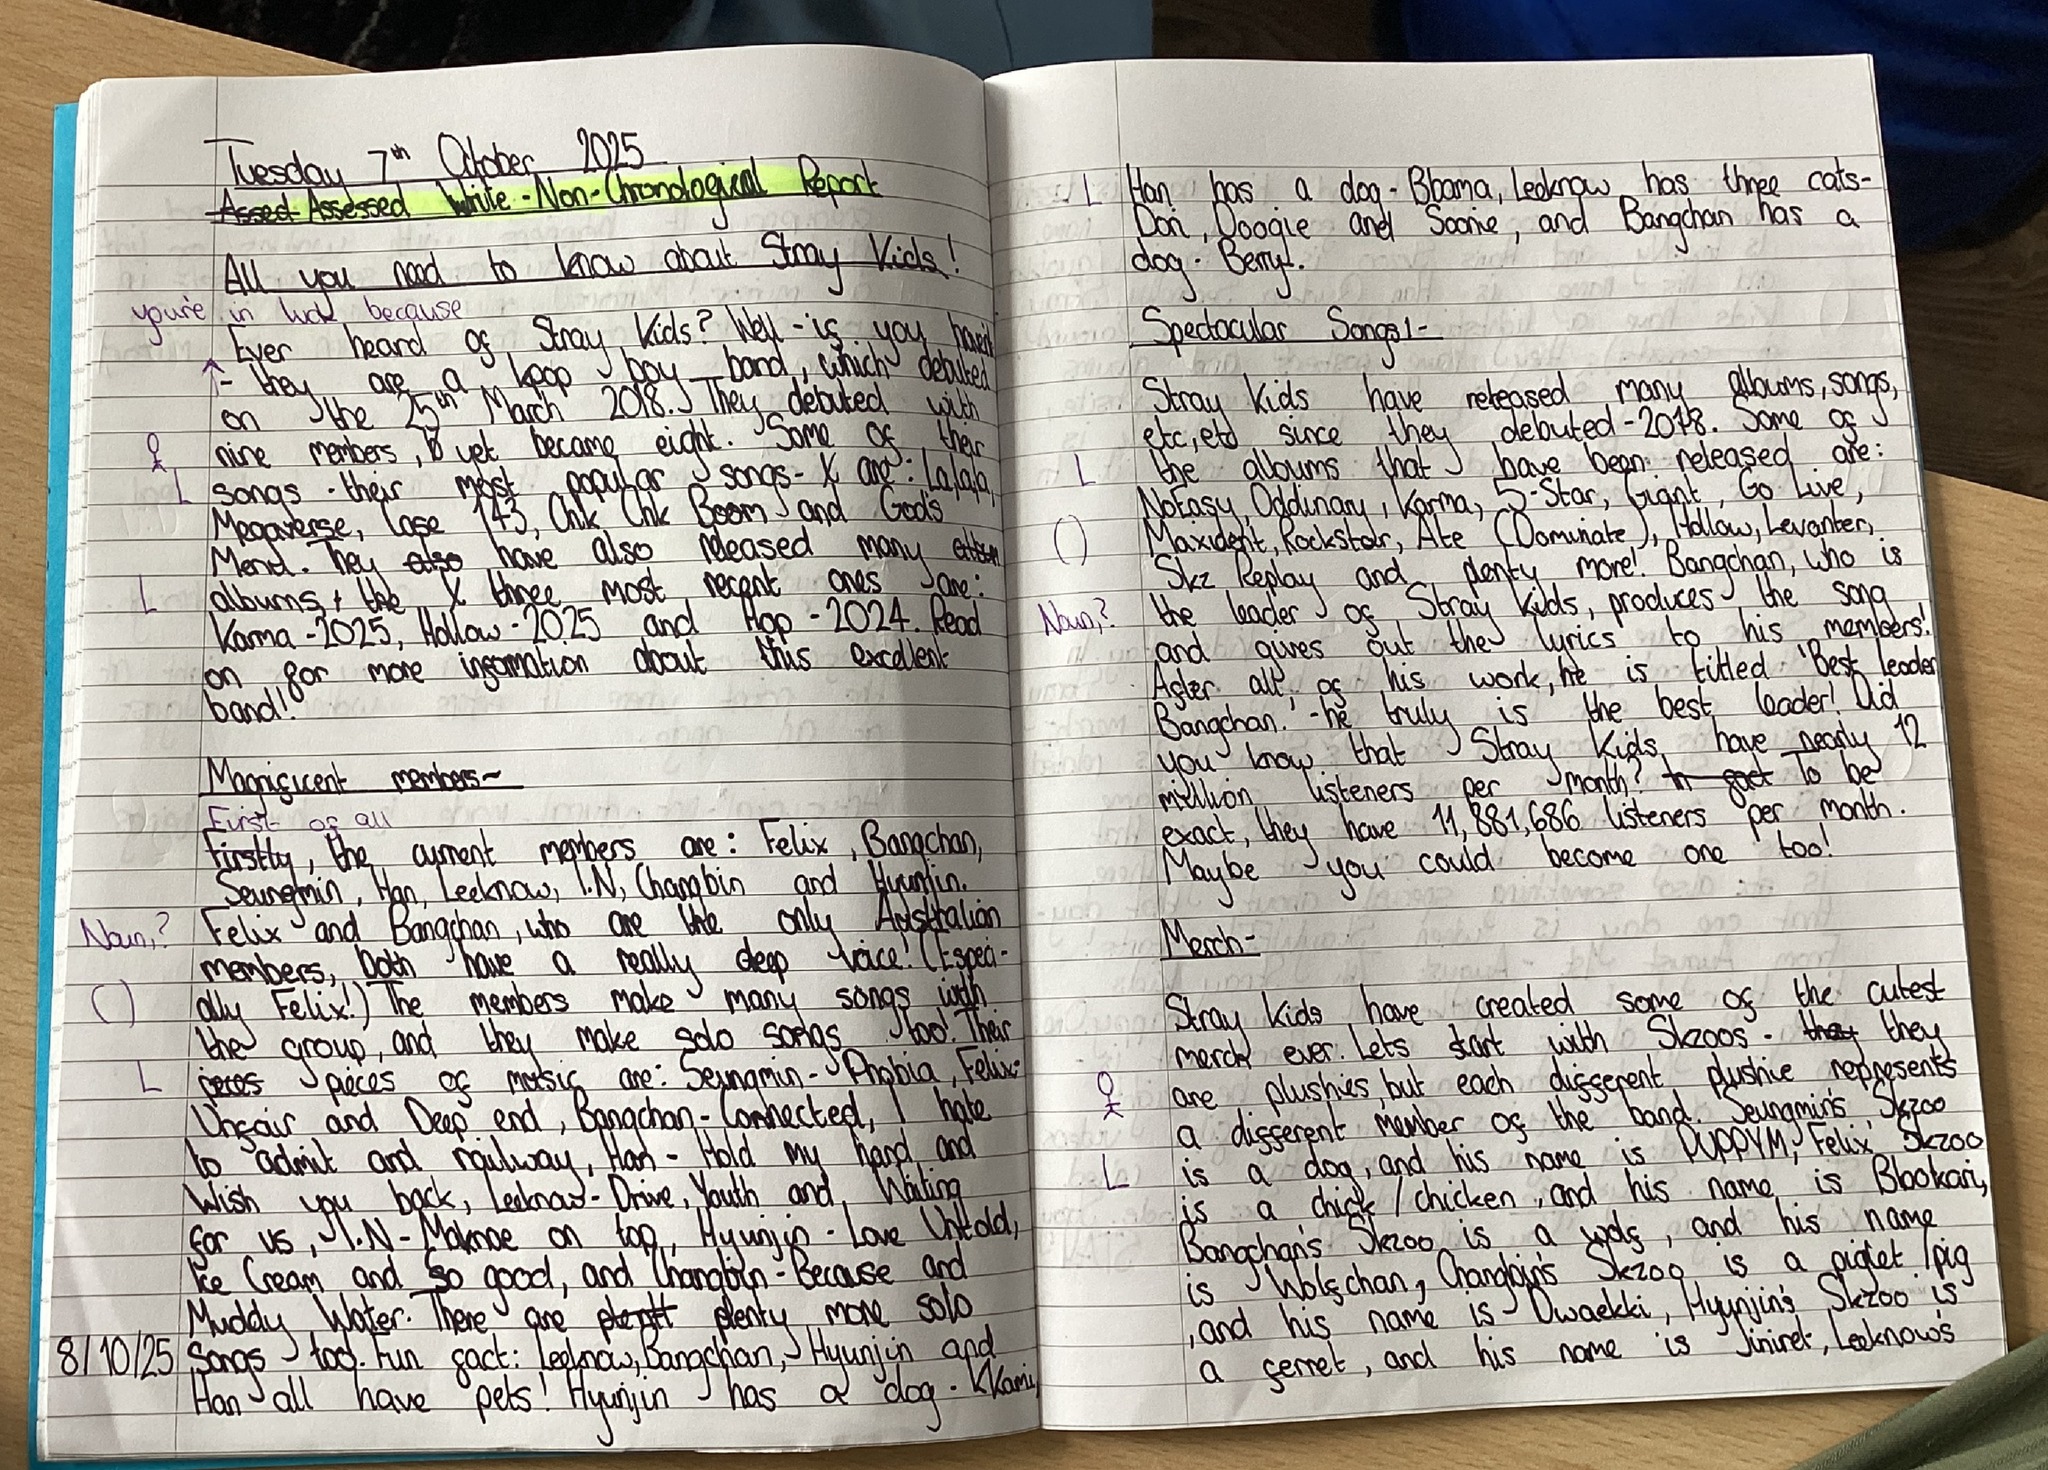 Tuesday 7th October 2025
Assed Assessed Write - Non-Chronological Report
All you need to know about Stray Kids!
you're in luck because
Ever heard of Stray Kids? Well - is you haven't
↑ - they are a kpop boy band, which debuted
on the 25th March 2018. They debuted with
nine members, yet became eight. Some of their
L songs - their most popular songs - X are: La,la,la,
Megaverse, Case 143, Chk Chk Boom and God's
Menu. They also have also released many album
L albums, + the X three most recent ones are:
Karma - 2025, Hollow - 2025 and Hop - 2024. Read
on for more information about this excellent
band!
Magnificent members~
First of all
Firstly, the current members are: Felix, Bangchan,
Seungmin, Han, Leeknow, I.N, Changbin and Hyunjin.
Noun,? Felix and Bangchan, who are the only Australian
members, both have a really deep voice! (Especi-
( ) ally Felix!) The members make many songs with
the group, and they make solo songs too! Their
L peces pieces of music are: Seungmin - Phobia, Felix-
Unfair and Deep end, Bangchan - Connected, I hate
to admit and railway, Han - Hold my hand and
Wish you back, Leeknow - Drive, Youth and Waiting
for us, I.N - Maknae on top, Hyunjin - Love Untold,
Ice Cream and So good, and Changbin - Because and
Muddy Water. There are plentt plenty more solo
8/10/25 songs too. Fun fact: Leeknow, Bangchan, Hyunjin and
Han all have pets! Hyunjin has a dog - KKami,
L Han has a dog - Bbama, Leeknow has three cats-
Dori, Doogie and Soonie, and Bangchan has a
dog - Berry!.
Spectacular Songs!-
Stray Kids have released many albums, songs,
etc,etc since they debuted - 2018. Some of
L the albums that have been released are:
NoEasy, Oddinary, Karma, 5-Star, Giant, Go Live,
( ) Maxident, Rockstar, Ate (Dominate), Hollow, Levanter,
Skz Replay and plenty more! Bangchan, who is
Noun,? the leader of Stray Kids, produces the song
and gives out the lyrics to his members!
After all of his work, he is titled 'Best leader
Bangchan.' - he truly is the best leader! Did
you know that Stray Kids have nearly 12
million listeners per month? In fact To be
exact, they have 11,881,686 listeners per month.
Maybe you could become one too!
Merch-
Stray Kids have created some of the cutest
merch ever. Lets start with Skzoos - they they
are plushies, but each different plushie represents
a different member of the band. Seungmin's Skzoo
L is a dog, and his name is PUPPYM, Felix Skzoo
is a chick/chicken, and his name is Bbokari,
Bangchan's Skzoo is a wolf, and his name
is Wolfchan, Changbin's Skzoo is a piglet/pig
, and his name is Dwaekki, Hyunjin's Skzoo is
a ferret, and his name is Jiniret, Leeknow's